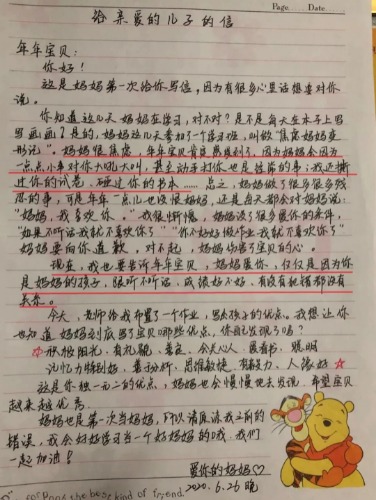 Page Date
给亲爱的儿子的信
年年宝贝:
你好!
这是妈妈第一次给你写信,因为有很多心里话想要对你
说。
你知道这几天妈妈在学习,对不对?是不是每天在本子上写
写画画?是的,妈妈这几天参加了一个学习班,叫做“焦虑妈妈变
形记”。妈妈很焦虑,年年宝贝肯定感受到了,因为妈妈会因为
一点点小事对你大吼大叫,甚至动手打你也是经常的事,我还撕
过你的试卷,砸过你的书本……总之,妈妈做了很多很多残
忍的事,可是年年一点儿也没恨妈妈,还是每天都会对妈妈说:
“妈妈,我喜欢你。”我很惭愧,妈妈设了很多爱你的条件,
“如果不听话我就不喜欢你了”“你不好好做作业我就不喜欢你了”
妈妈要向你道歉,对不起,妈妈伤害了宝贝的心。
现在,我也要告诉年年宝贝,妈妈爱你,仅仅是因为你
是妈妈的孩子,跟听不听话,成绩好不好,有没有犯错都没有
关系。
今天,老师给我布置了一个作业,写给孩子的优点。我想让你
也知道妈妈到底写了宝贝哪些优点,你自己发现了吗?
积极阳光、有礼貌、善良、会关心人、爱看书、聪明
记忆力特别好、善于分析、思维敏捷、有毅力、人缘好
这是你独一无二的优点,妈妈也会慢慢地去发现,希望宝贝
越来越优秀。
妈妈也是第一次当妈妈,所以请原谅我之前的
错误,我会好好学习当一个好妈妈的哦,我们
一起加油!
爱你的妈妈♡
2020.6.26晚
for Pong the best kind of friend.